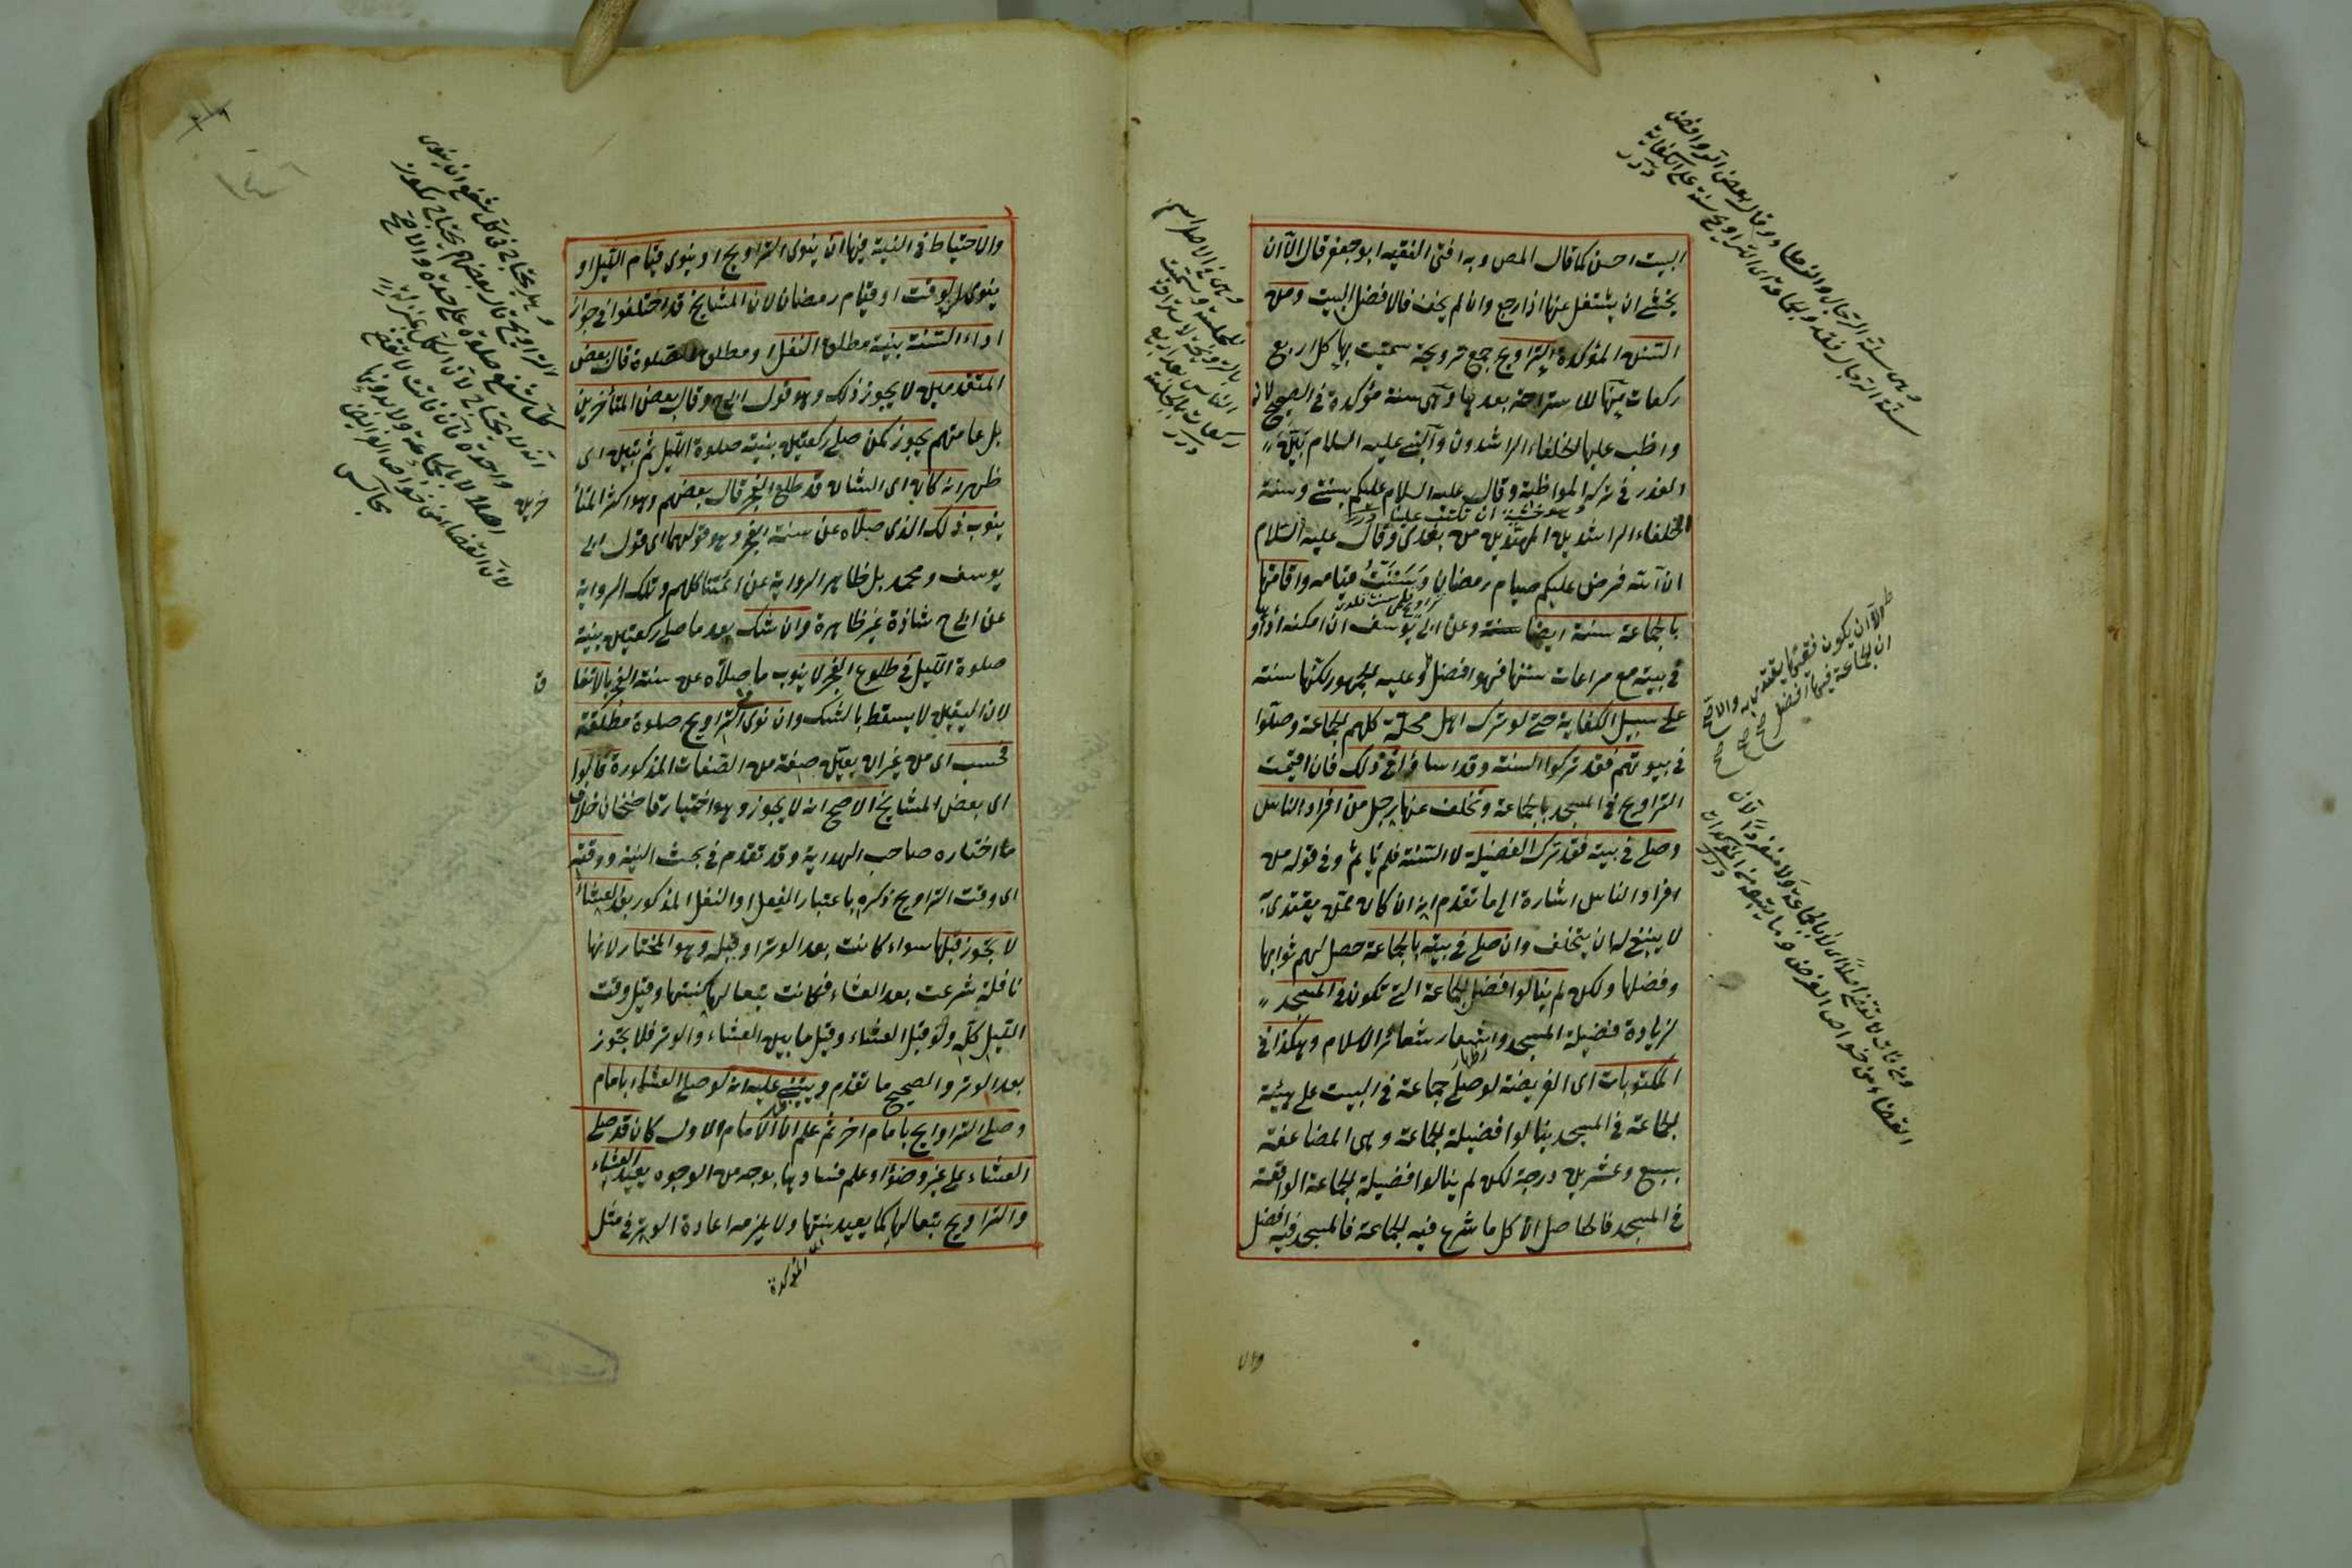 البيت احسن كما قال المص وبه افتى الفقيه ابو جعفر قال الا ان
يخشى ان يشتغل عنها اذا رجع وان لم يخف فالافضل البيت ومن
السنن المؤكدة التراويح جمع ترويحة سميت بها كل اربع
ركعات منها للاستراحة بعدها وهى سنة مؤكدة فى الصحيح لانه
واظب عليها الخلفاء الراشدون والنبى عليه السلام بيّن
العذر فى تركه المواظبة وقال عليه السلام عليكم بسنتى وسنة
وهو خشية ان تكتب علينا درر
الخلفاء الراشدين المهتدين من بعدى وقال عليه السلام
ان الله فرض عليكم صيام رمضان وسننت قيامه واقامتها
بالجماعة سنة ايضا وعن ابى يوسف ان امكنه اداؤ
فى بيته مع مراعات سنتها فهو افضل وعليه الجمهور لكنها سنة
على سبيل الكفاية حتى لو ترك اهل محلة كلهم الجماعة وصلوا
فى بيوتهم فقد تركوا السنة وقد اساؤا فى ذلك فان اقيمت
التراويح فى المسجد بالجماعة وتخلف عنها رجل من افراد الناس
وصلى فى بيته فقد ترك الفضيلة لا السنة فلم يأثم وفى قوله من
افراد الناس اشارة الى ما تقدم انه ان كان ممن يقتدى به
لا ينبغى له ان يتخلف وان صلى فى بيته بالجماعة حصل لهم ثوابها
وفضلها ولكن لم ينالوا فضل الجماعة التى تكون فى المسجد
لزيادة فضيلة المسجد واشعار شعائر الاسلام وهكذا فى
المكتوبات اى الفريضة لو صلى جماعة فى البيت على هيئة
الجماعة فى المسجد ينالوا فضيلة الجماعة وهى المضاعفة
بسبع وعشرين درجة لكن لم ينالوا فضيلة الجماعة الواقعة
فى المسجد فالحاصل ان كل ما شرع فيه الجماعة فالمسجد فيه افضل
وهى سنة الرجال والنساء وقال بعض الروافض
سنة الرجال فقط والجماعة فى التراويح سنة على الكفاية
درر
الا ان يكون فقيها يقتدى به والاصح
ان الجماعة فيها افضل
القضاء من خواص الفرض وما يتبعه من المؤكدات
درر
والاحتياط فى النية فيها ان ينوى التراويح او ينوى قيام الليل او
ينوى الوقت او قيام رمضان لان المشايخ قد اختلفوا فى جواز
اداء السنة بنية مطلق النفل او مطلق الصلوة قال بعض
المتقدمين لا يجوز ذلك وهو قول ابى ح وقال بعض المتأخرين
بل عامتهم يجوز كمن صلى ركعتين بنية صلوة الليل ثم تبين اى
ظهر انه كان اى الشان قد طلع الفجر قال بعضهم وهو اكثر المتأ
خرين
ينوب ذلك الذى صلاه عن سنة الفجر وهو قولهما اى قول ابى
يوسف ومحمد بل ظاهر الرواية عن ائمتنا كلهم وتلك الرواية
عن ابى ح شاذة غير ظاهرة وان شك بعد ما صلى ركعتين بنية
صلوة الليل فى طلوع الفجر لا ينوب ما صلاه عن سنة الفجر بالاتفا
ق
لان اليقين لا يسقط بالشك وان نوى التراويح صلوة مطلقة
فحسب اى من غير ان يعين صفة من الصفات المذكورة قالوا
اى بعض المشايخ الاصح انه لا يجوز وهو اختيار قاضيخان خلاف
ما اختاره صاحب الهداية وقد تقدم فى بحث النية ووقته
اى وقت التراويح ذكره باعتبار الفعل او النفل المذكور بعد العشاء
لا يجوز قبلها سواء كانت بعد الوتر او قبله وهو المختار لانها
نافلة شرعت بعد العشاء فكانت تبعا لها كسنتها وقيل وقت
الليل كله ولو قبل العشاء وقيل ما بين العشاء والوتر فلا يجوز
بعد الوتر والصحيح ما تقدم ويبتنى عليه انه لو صلى العشاء بامام
وصلى التراويح بامام اخر ثم علم ان الامام الاول كان قد صلى
العشاء على غير وضوء او علم فسادها بوجه من الوجوه يعيد العشاء
والتراويح تبعا لها كما يعيد سنتها ولا يلزمه اعادة الوتر فى مثل
المؤكدة